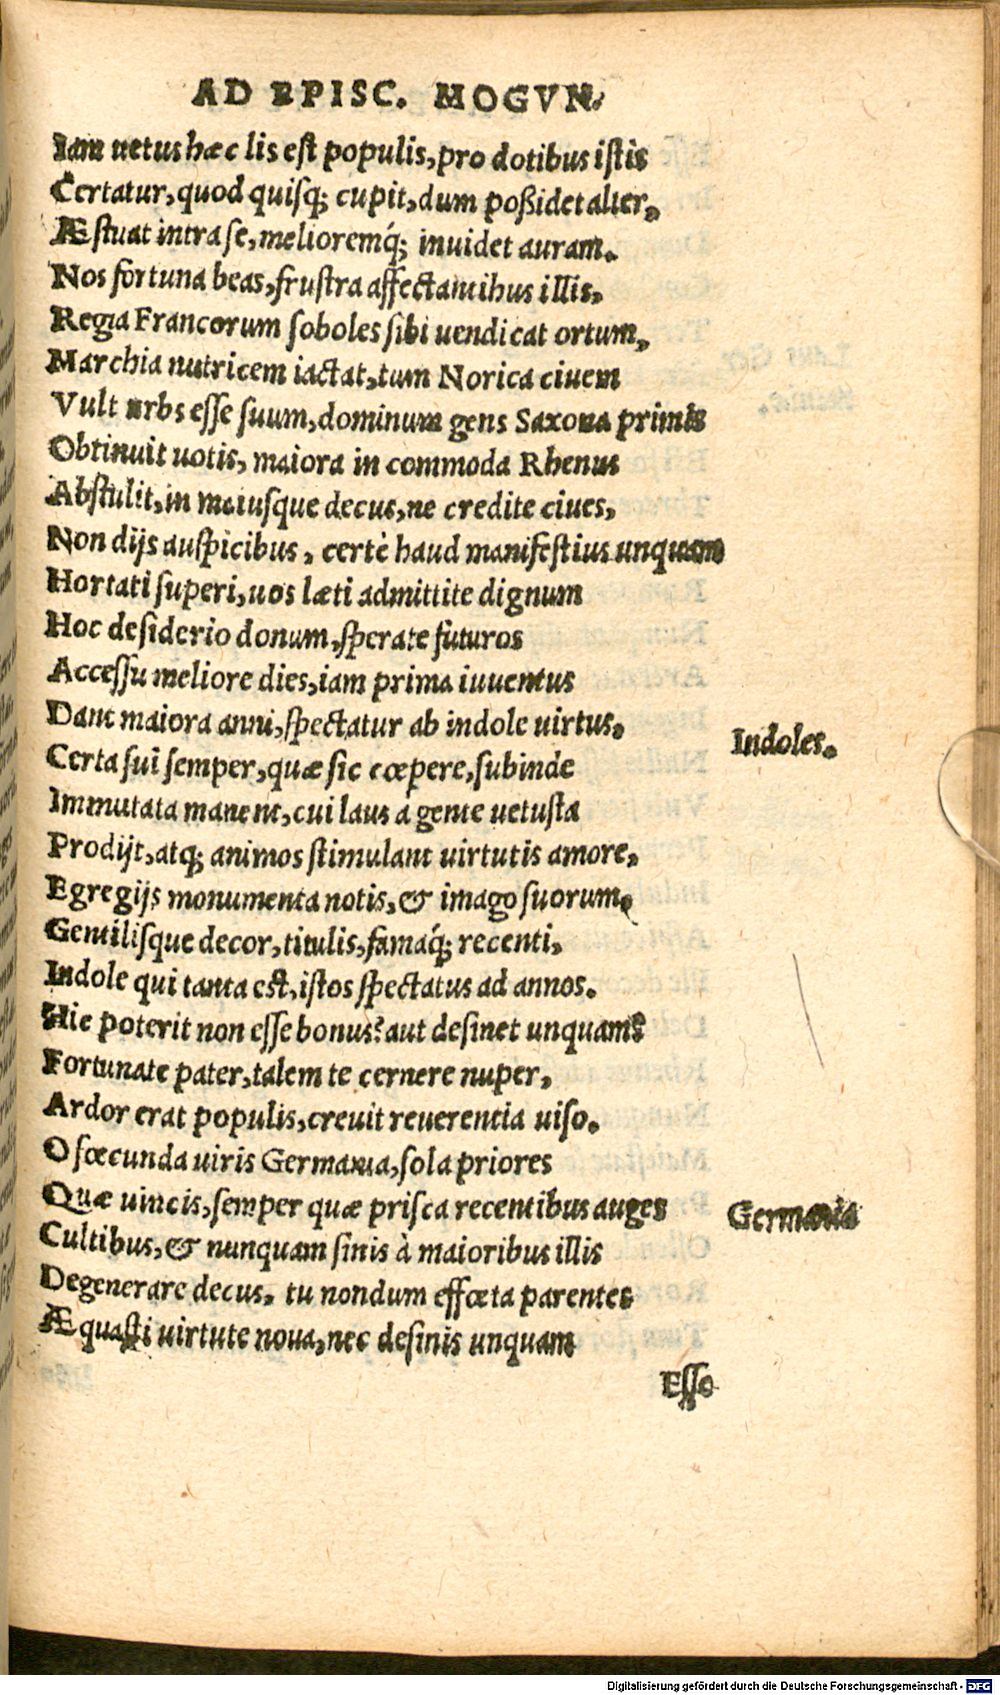 AD EPISC. MOGVN.
Iam uetus hæc lis est populis, pro dotibus istis
Certatur, quod quisq; cupit, dum poßidet alter,
Æstuat intra se, melioremq́; inuidet auram.
Nos fortuna beas, frustra affectantibus illis,
Regia Francorum soboles sibi uendicat ortum,
Marchia nutricem iactat, tum Norica ciuem
Vult urbs esse suum, dominum gens Saxona primis
Obtinuit uotis, maiora in commoda Rhenus
Abstulit, in maiusque decus, ne credite ciues,
Non dijs auspicibus, certè haud manifestius unquam
Hortati superi, uos læti admittite dignum
Hoc desiderio donum, sperate futuros
Accessu meliore dies, iam prima iuuentus
Dant maiora anni, spectatur ab indole uirtus,
Indoles.
Certa sui semper, quæ sic cœpere, subinde
Immutata manent, cui laus à gente uetusta
Prodijt, atq; animos stimulant uirtutis amore,
Egregijs monumenta notis, & imago suorum,
Gentilisque decor, titulis, famaq́; recenti,
Indole qui tanta est, istos spectatus ad annos.
Hic poterit non esse bonus? aut desinet unquam?
Fortunate pater, talem te cernere nuper,
Ardor erat populis, creuit reuerentia uiso.
O fœcunda uiris Germania, sola priores
Quæ uincis, semper quæ prisca recentibus auges
Germania
Cultibus, & nunquam sinis à maioribus illis
Degenerare decus, tu nondum effœta parentes
Æquasti uirtute noua, nec desinis unquam
Esse
Digitalisierung gefördert durch die Deutsche Forschungsgemeinschaft - DFG